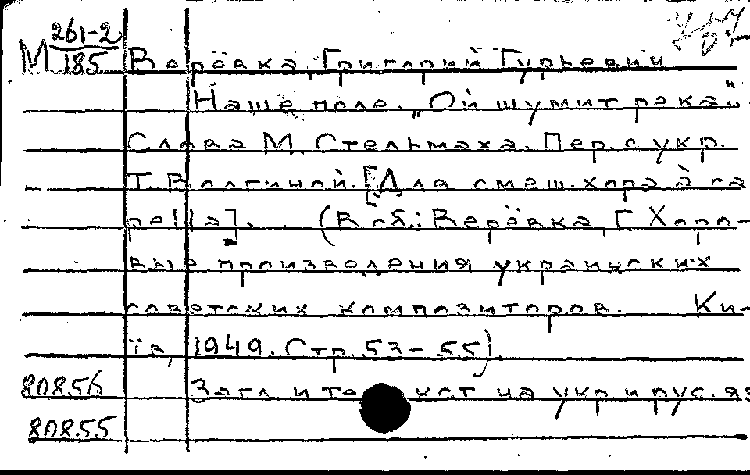 М 261-2
185 Верёвка, Григорий Гурьевич
Наше поле. „Ой шумит река"
Слова М. Стельмаха. Пер. с укр.
Т. Волгиной. [Для смеш. хора à ca
pella]. (В сб.: Верёвка, Г. Хоро-
вые произведения украинских
советских композиторов. Ки-
їв, 1949. Стр. 53-55).
80856 Загл. и текст на укр. и рус. яз
80855